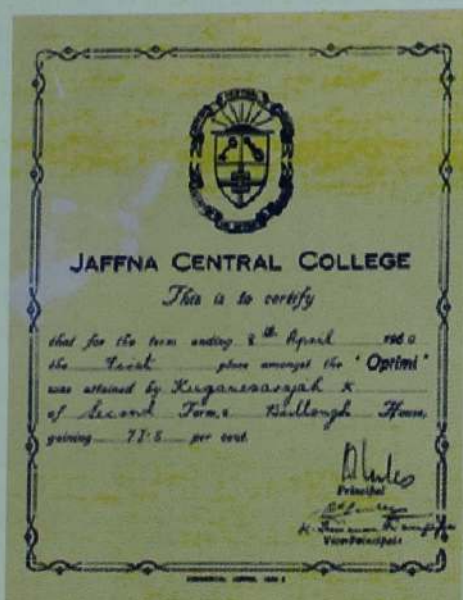 JAFFNA CENTRAL COLLEGE
This is to certify
that for the term ending 8th April 1960
the First place amongst the "Optimi"
was attained by K
of Second Form, House,
gaining 77.5 per cent.
Principal
Vice-Principals